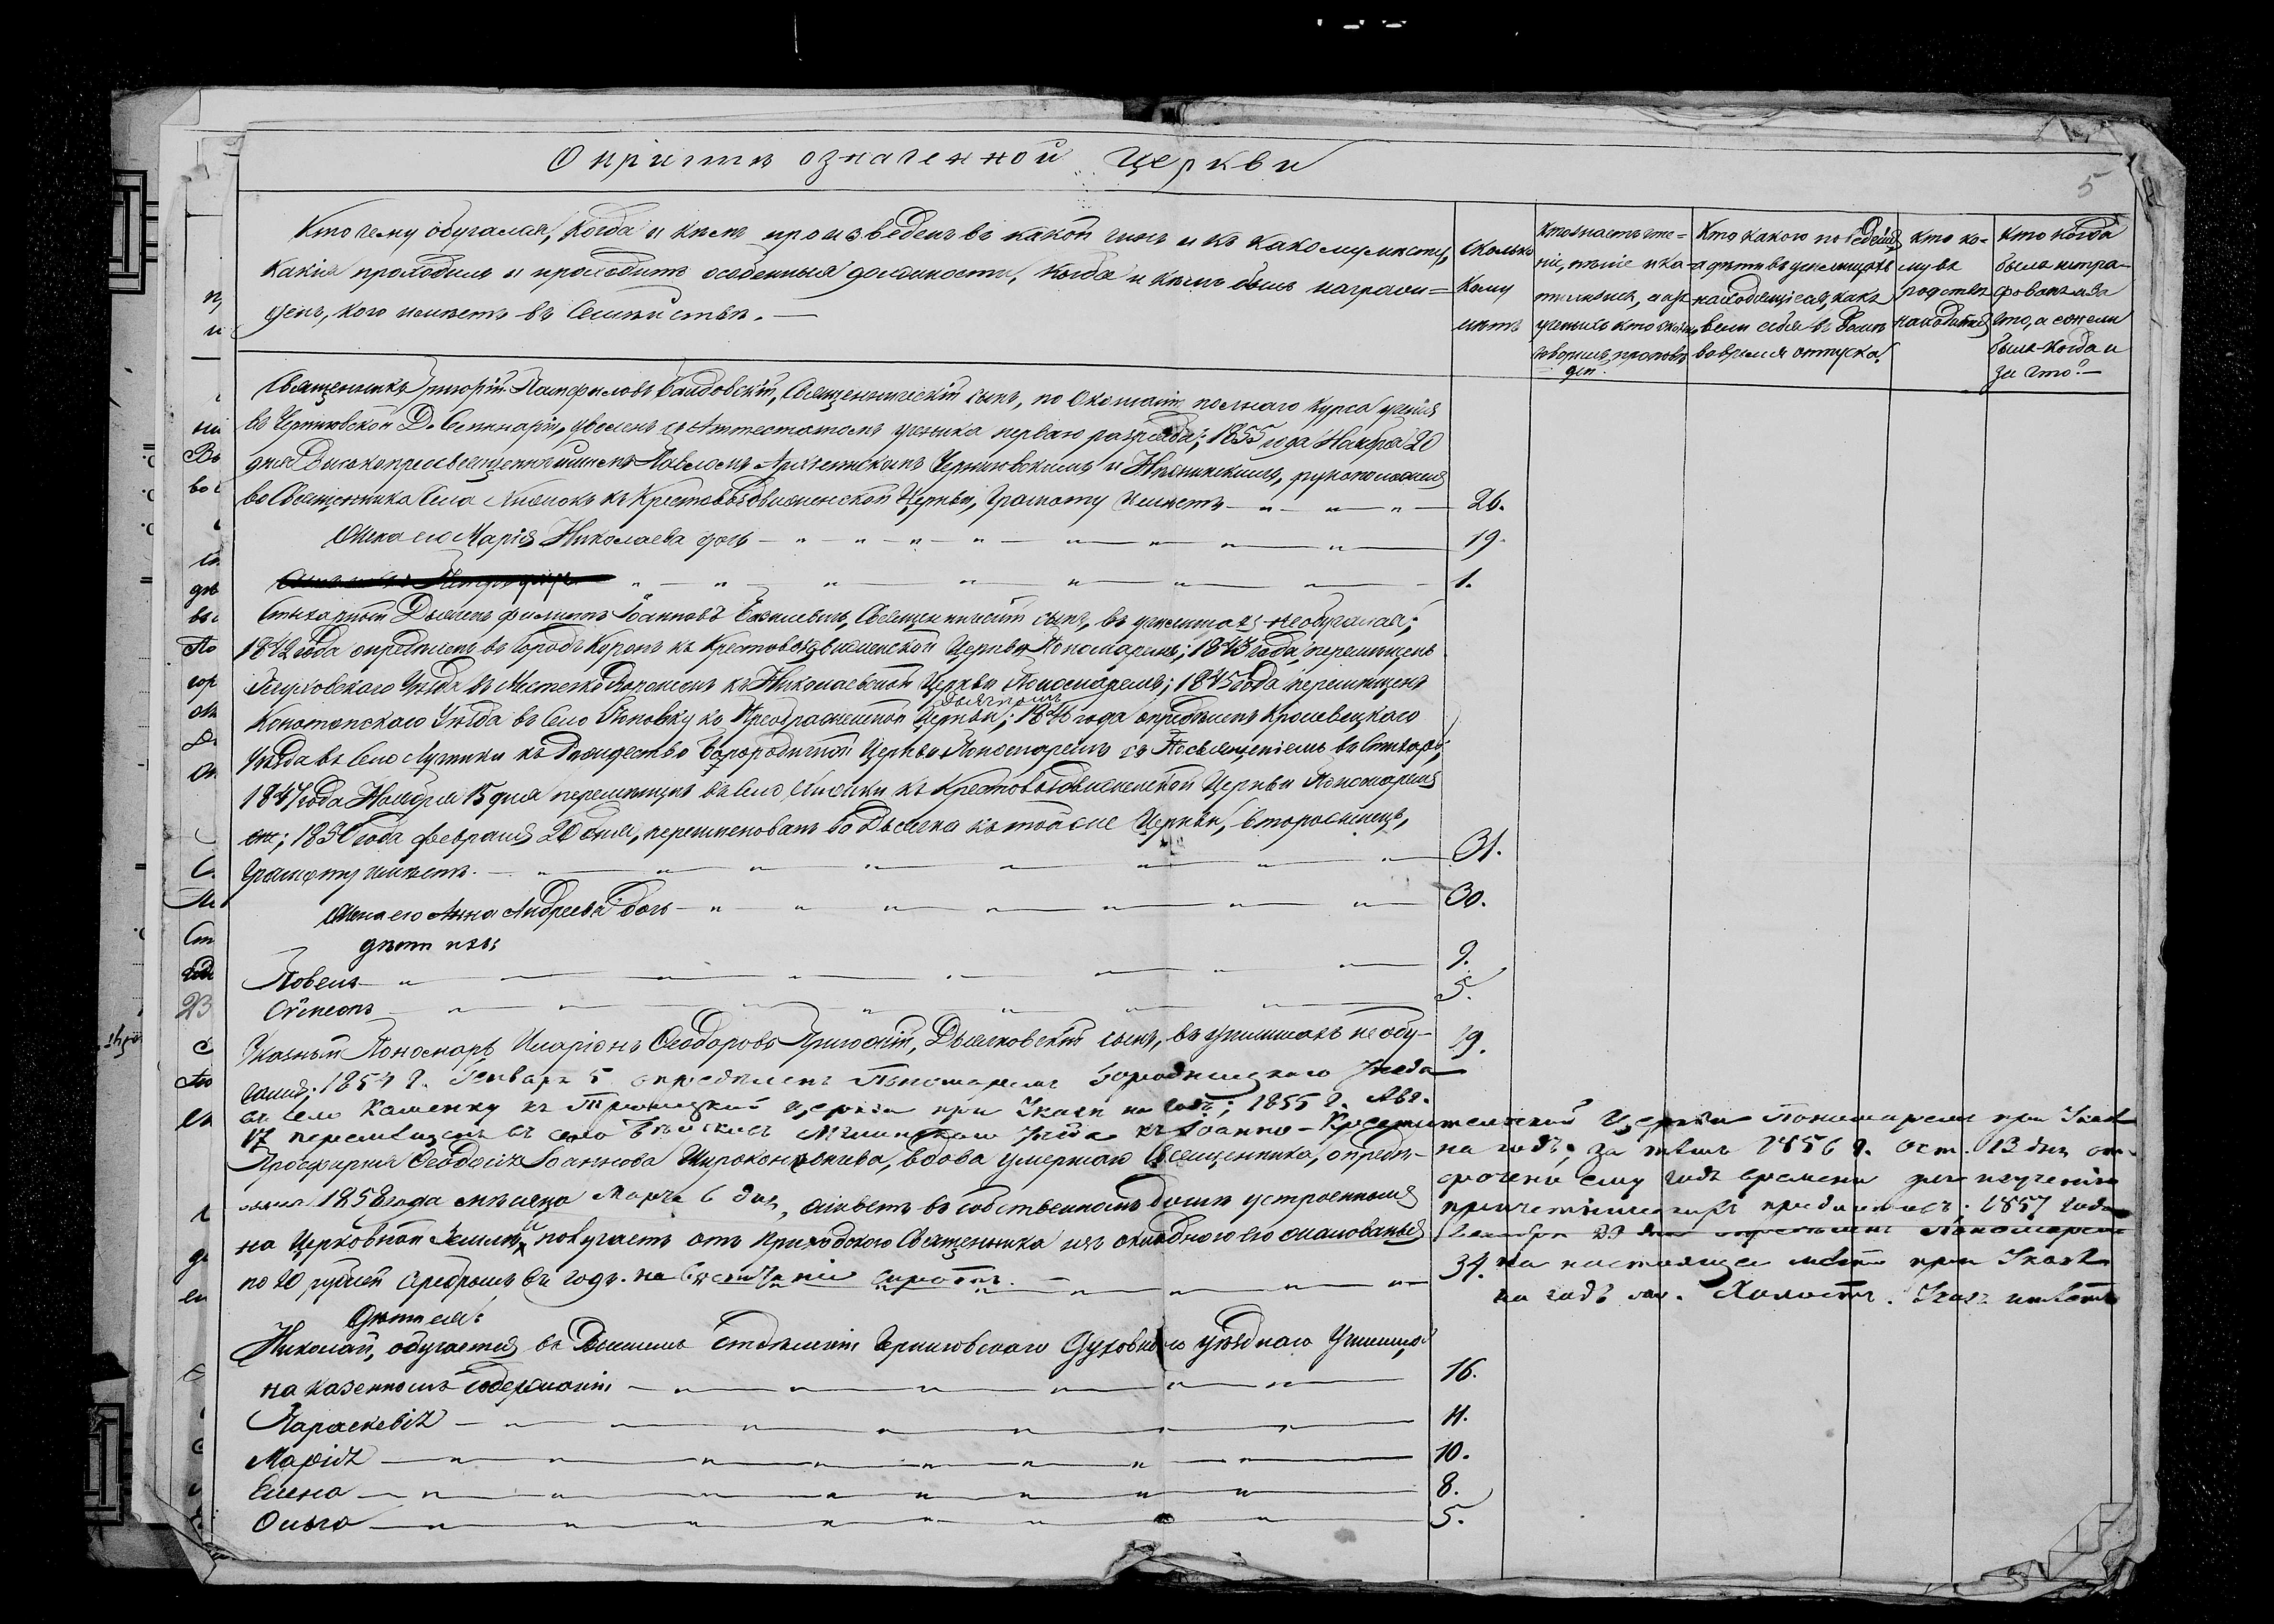 О причтѣ означенной церкви
5
Кто чему обучался, когда и кѣмъ произведенъ въ какой чинъ и къ какому мѣсту,
какія проходилъ и проходитъ особенныя должности, когда и кѣмъ былъ награж-
денъ, кого имѣетъ въ семействѣ. —
Сколько
кому
лѣтъ
Кто знаетъ чте-
ніе, пѣніе и ка-
тихизисъ, а изъ
ученыхъ кто сколько
говорилъ пропов-
дей.
Кто какого поведенія,
а дѣти въ училищахъ
находящіеся, какъ
вели себя въ домѣ
во время отпуска.
Кто ко-
му въ
родствѣ
находится
Кто когда
былъ штра-
фованъ и за
что, а ежели
былъ когда и
за что? —
Священникъ Григорій Памфиловъ, Священническій сынъ, по окончаніи полнаго курса ученія
въ Черниговской Д. Семинаріи, уволенъ съ Аттестатомъ ученика перваго разряда; 1855 года Ноября 20
дня Высокопреосвященнѣйшимъ Павломъ Архіепископомъ Черниговскимъ и Нѣжинскимъ, рукоположенъ
во Священника села къ Крестовоздвиженской Церкви, Грамоту имѣетъ — 26.
Жена его Марія Николаева дочь — 19.
1.
Стихарный Дьячекъ Филиппъ Іоанновъ, Священническій сынъ, въ училищахъ не обучался;
1842 года опредѣленъ въ городъ Коропъ къ Крестовоздвиженской Церкви Пономаремъ; 1843 года, перемѣщенъ
Глуховскаго Уѣзда въ Мѣстечко Воронежъ къ Николаевской Церкви Пономаремъ; 1845 года перемѣщенъ
дьячкомъ
Конотопскаго Уѣзда въ Село Поповку къ Преображенской Церкви; 1846 года опредѣленъ Кролевецкаго
Уѣзда въ Село Лучники къ Рождество Богородичной Церкви Пономаремъ съ Посвященіемъ въ Стихарь;
1847 года Ноября 15 дня перемѣщенъ въ Село къ Крестовоздвиженской Церкви Пономаремъ
же; 1850 года февраля 20 дня, переименованъ во Дьячка къ той же Церкви, второженецъ,
Грамоту имѣетъ. — 31.
Жена его Анна Андреева дочь — 30.
дѣти ихъ:
Павелъ — 9.
Симеонъ — 5.
Указный Пономарь Иларіонъ Ѳеодоровъ, Дьячковскій сынъ, въ училищахъ не обу- 19.
чался; 1854 г. Января 5 опредѣленъ Пономаремъ Городницкаго Уѣзда
въ село Каменку къ Троицкой церкви при Указѣ на годъ; 1855 г. Авг.
17 перемѣщенъ въ село Мглинскаго Уѣзда къ Іоанно-Крестительской Церкви Пономаремъ при Указѣ
на годъ; за тѣмъ 1856 г. Окт. 13 дня от-
срочено ему годъ времени для изученія
причетническихъ предметовъ; 1857 года
Декабря 29 дня опредѣленъ Пономаремъ
на настоящее мѣсто при Указѣ
на годъ. Холостъ. Указъ имѣетъ
Просфирня Ѳеодосія Іоаннова, вдова умершаго Священника, опредѣ-
лена 1858 года мѣсяца Марта 6 дня, живетъ въ собственномъ домѣ устроенномъ
на Церковной Землѣ, получаетъ отъ Приходскаго Священника изъ окладнаго его жалованья
по 20 рублей серебромъ въ годъ. на сиротъ. — 34.
Дѣти ея:
Николай, обучается въ Высшемъ Отдѣленіи Черниговскаго Духовнаго уѣзднаго Училища,
на казенномъ содержаніи — 16.
Параскевія — 11.
Марія — 10.
Елена — 8.
Ольга — 5.